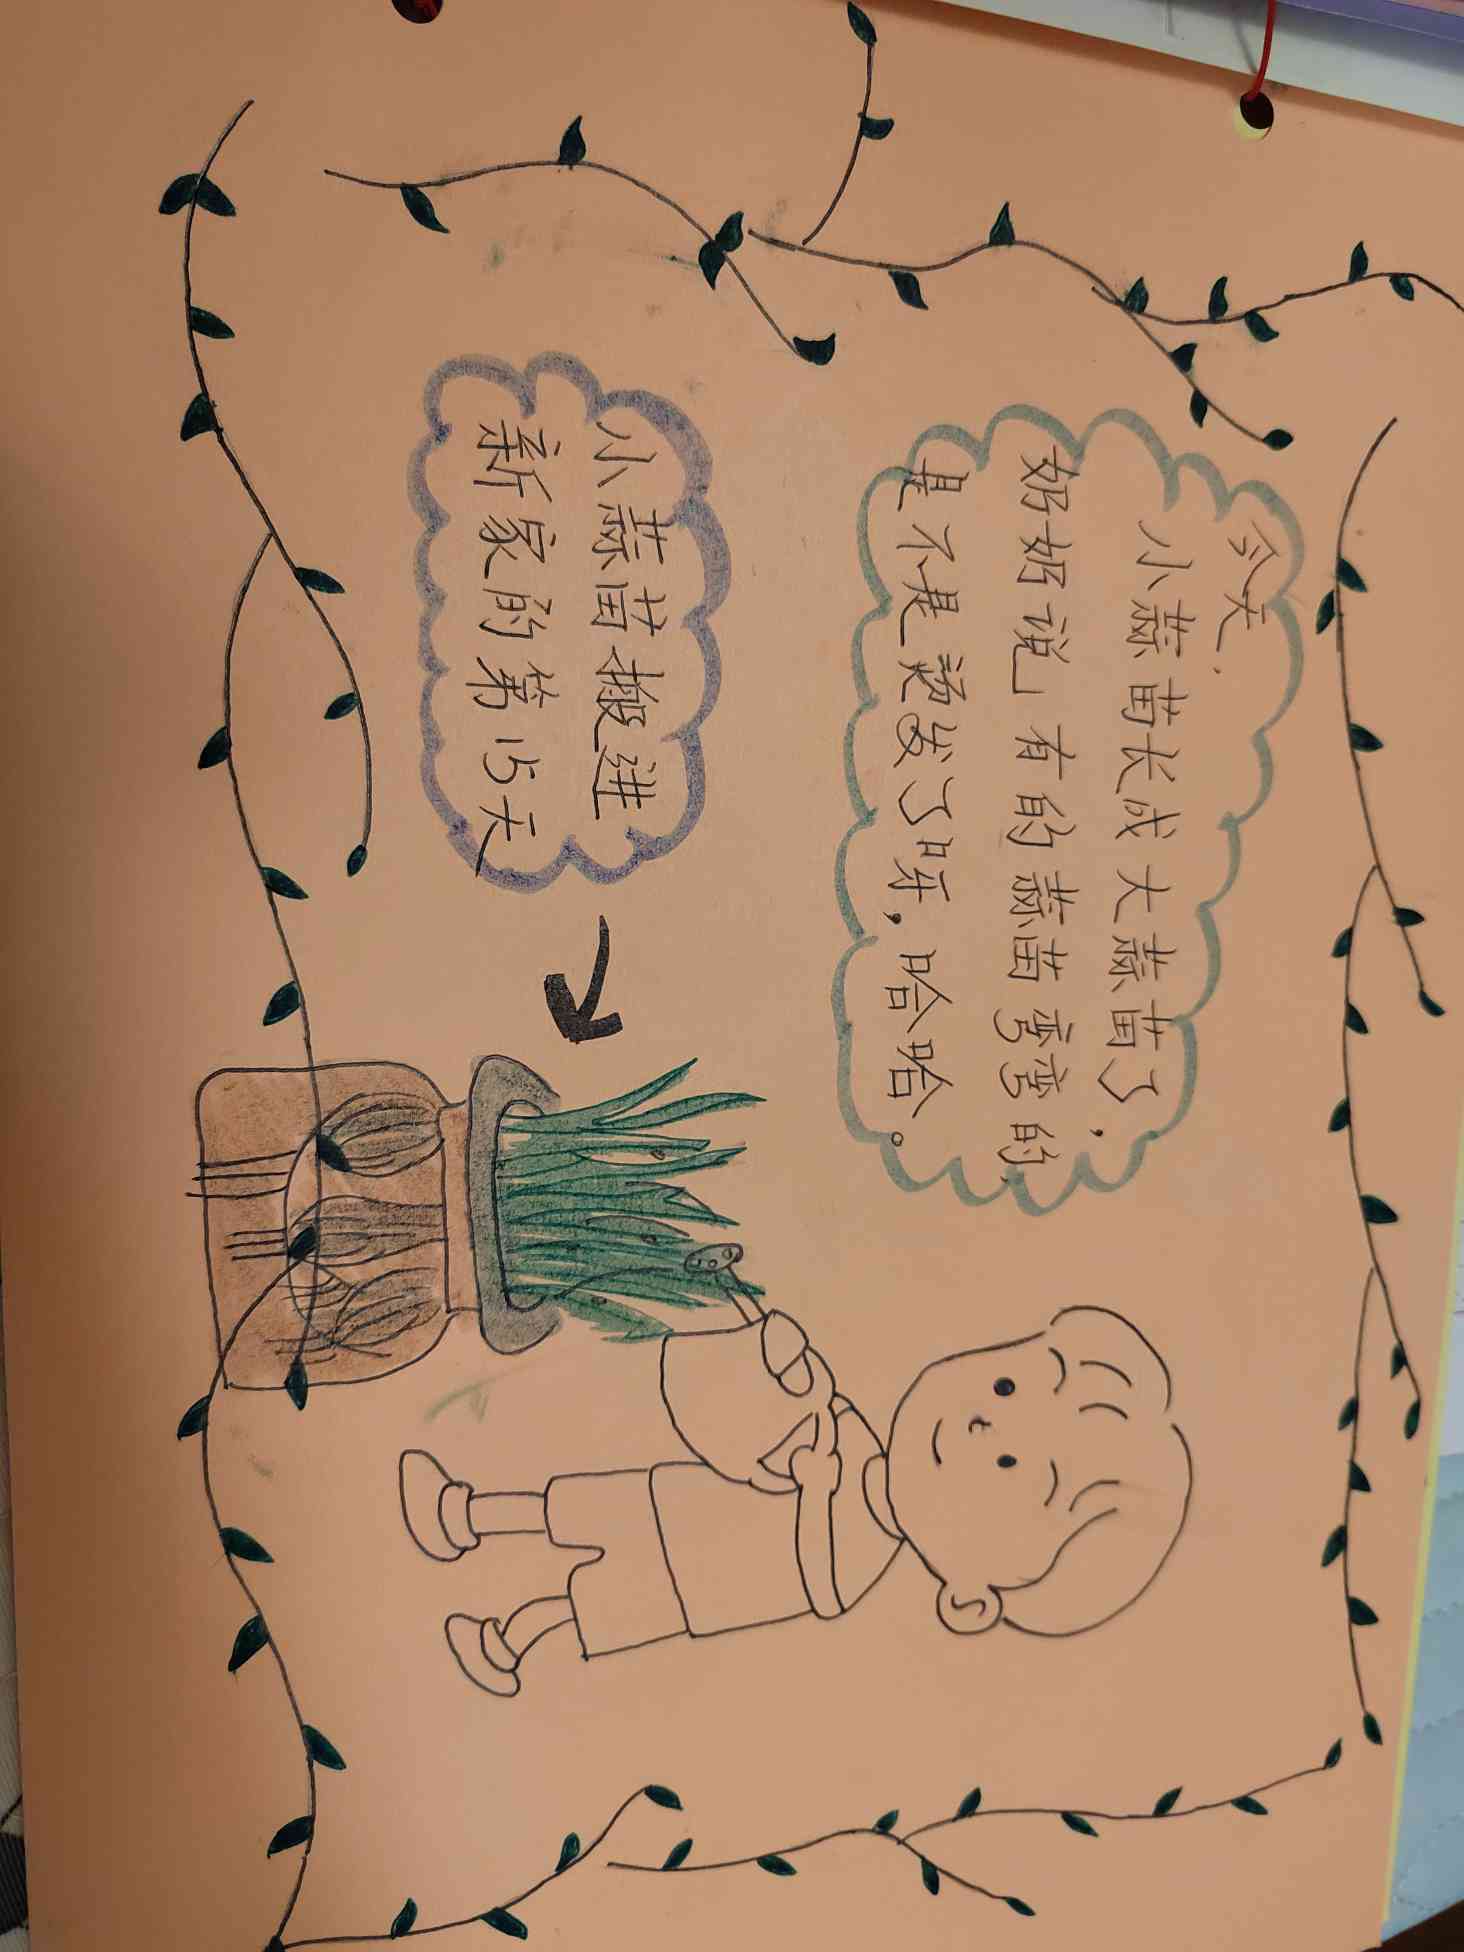 今天,
小蒜苗长成大蒜苗了,
好好说有的蒜苗弯弯的
是不是烫发了呀,哈哈。
小蒜苗搬进
新家的第15天